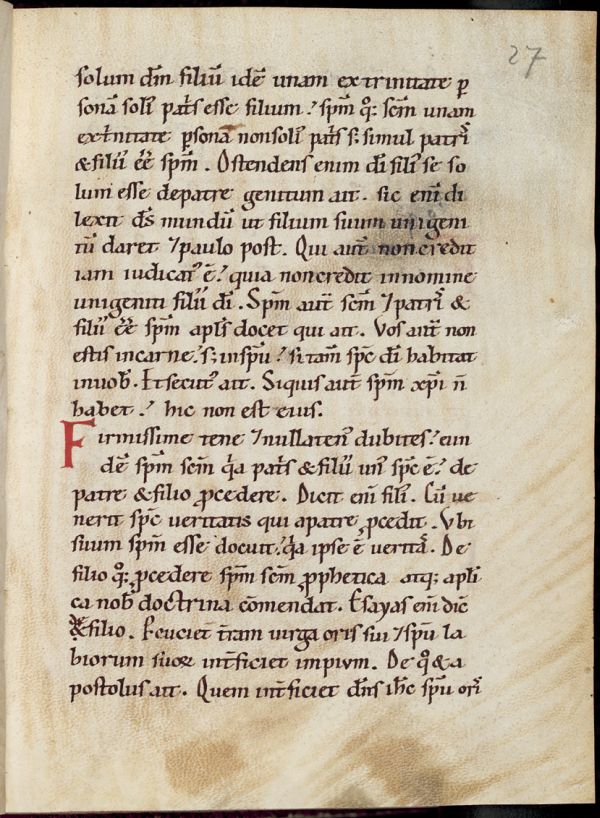 27
solum dm̄ filiū idē unam ex trinitate p̲
sonā soli᾽ pat̄s esse filium. sp̄m q; sc̄m unam
ex t̄nitate p̲sonā non soli᾽ pat̄s s; simul patri᾽
& filii᾽ e̅e̅ sp̄m. Ostendens enim di᾽ fili᾽ se so
lum esse de patre genitum ait. sic eni᾽ di
lexit ds̄ mundū ut filium suum unigeni
tū daret ⁊ paulo post. Qui aut̄ non credit
iam iudicat᾽ ē. quia non credit in nomine
unigeniti filii᾽ di᾽. Sp̄m aut̄ sc̄m ⁊ patri᾽ &
filii᾽ e̅e̅ sp̄m apl̄s docet qui ait. Vos aut̄ non
estis in carne. s; in sp̄u. si tam̄ sp̄c di᾽ habitat
in uob̄. Et secut᾽ ait. Siquis aut̄ sp̄m xp̄i n̄
habet. hic non est eius.
Firmissime tene ⁊ nullaten᾽ dubites. eun
dē sp̄m sc̄m q᾽a pat̄s & filii᾽ un᾽ sp̄c ē. de
patre & filio ꝓcedere. Dicit eni᾽ fili᾽. Cū ue
nerit sp̄c veritatis qui a patre ꝓcedit. Vbi
suum sp̄m esse docuit. q᾽a ipse ē veritā. De
filio q; ꝓcedere sp̄m sc̄m ꝓphetica atq; apl̄i
ca nob̄ doctrina cōmendat. Esayas eni᾽ dic̄
de filio. Percuciet t̄ram uirga oris sui ⁊ sp̄u la
biorum suoꝝ int̄ficiet impium. De qo & a
postolus ait. Quem int̄ficiet dn̄s ih̄c sp̄u ori᾽